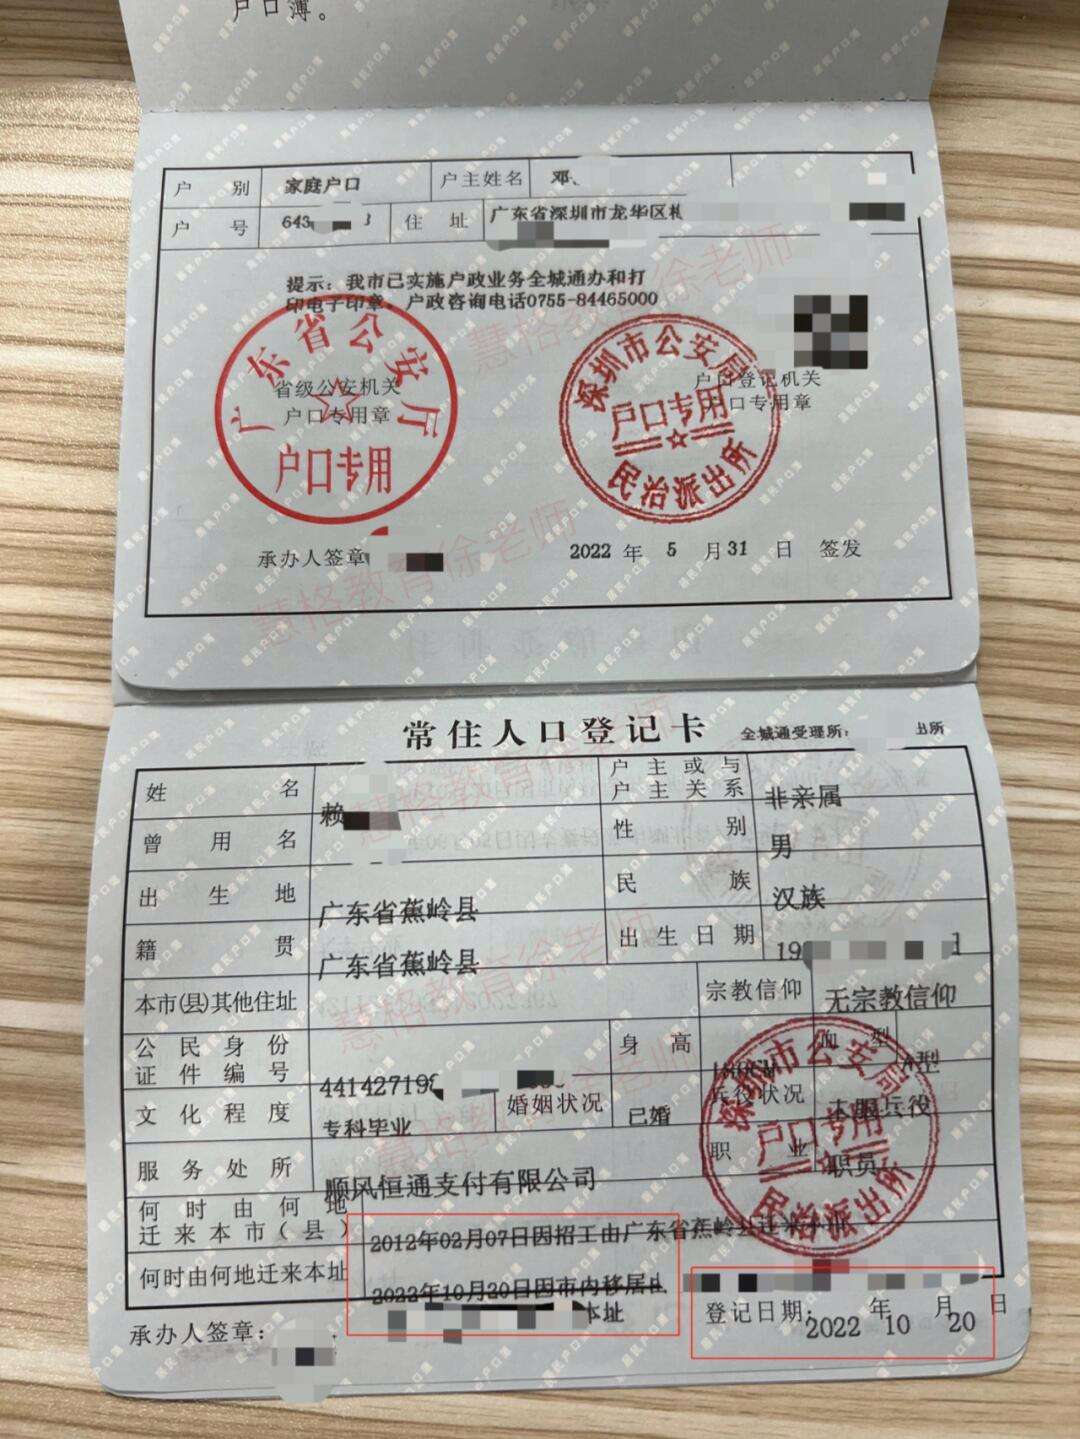 户口簿。
户别 家庭户口 户主姓名 邓
户号 643 3 住址 广东省深圳市龙华区
提示：我市已实施户政业务全城通办和打
印电子印章，户政咨询电话0755-84465000
广东省公安厅
户口专用
省级公安机关
户口专用章
深圳市公安局
户口专用
民治派出所
户口登记机关
户口专用章
承办人签章
2022 年 5 月 31 日 签发
慧格教育徐老师
慧格教育徐老师
常住人口登记卡 全城通受理所： 出所
姓名 赖 户主或与
户主关系 非亲属
曾用名 性别 男
出生地 广东省蕉岭县 民族 汉族
籍贯 广东省蕉岭县 出生日期 19 1
本市(县)其他住址 宗教信仰 无宗教信仰
公民身份
证件编号 441427199 身高 180CM 血型 A型
文化程度 专科毕业 婚姻状况 已婚 兵役状况 未服兵役
服务处所 顺风恒通支付有限公司 职业 职员
何时由何地
迁来本市(县) 2012年02月07日因招工由广东省蕉岭县迁来
何时由何地迁来本址 2022年10月20日因市内移居
本址
深圳市公安局
户口专用
民治派出所
承办人签章：
登记日期： 2022 年 10 月 20 日